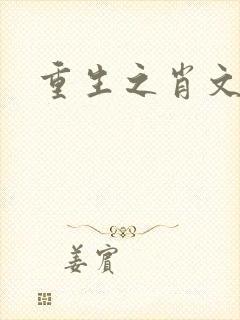 重生之肖文
姜宾